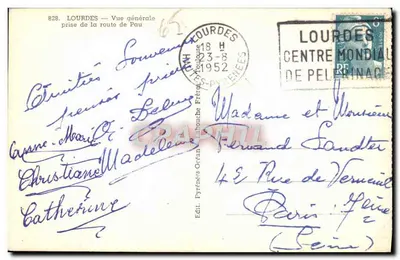 828. LOURDES — Vue générale
prise de la route de Pau
65
LOURDES
18 H
23-8
1952
HAUTES PYRENEES
LOURDES
CENTRE MONDIAL
DE PELERINAGE
Amitiés Souvenirs
pensées prières
Deluz
Anne-Marie
Christiane Madeleine
Catherine
Madame et Monsieur
Fernand Sandter
42 Rue de Verneuil
Paris 7ème
(Seine)